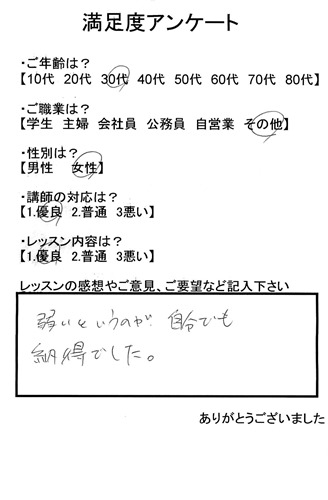 満足度アンケート
・ご年齢は？
【10代 20代 30代 40代 50代 60代 70代 80代】
・ご職業は？
【学生 主婦 会社員 公務員 自営業 その他】
・性別は？
【男性 女性】
・講師の対応は？
【1.優良 2.普通 3悪い】
・レッスン内容は？
【1.優良 2.普通 3悪い】
レッスンの感想やご意見、ご要望など記入下さい
弱いというのが 自分でも
納得でした。
ありがとうございました